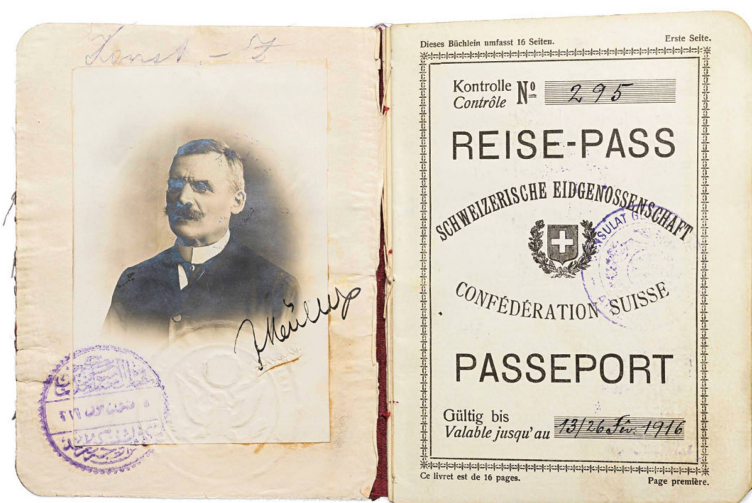 Dieses Büchlein umfasst 16 Seiten. Erste Seite.
Kontrolle
Contrôle
Nº 295
REISE-PASS
SCHWEIZERISCHE EIDGENOSSENSCHAFT
CONFÉDÉRATION SUISSE
PASSEPORT
Gültig bis
Valable jusqu'au 13/26 Fév. 1916
Ce livret est de 16 pages. Page première.